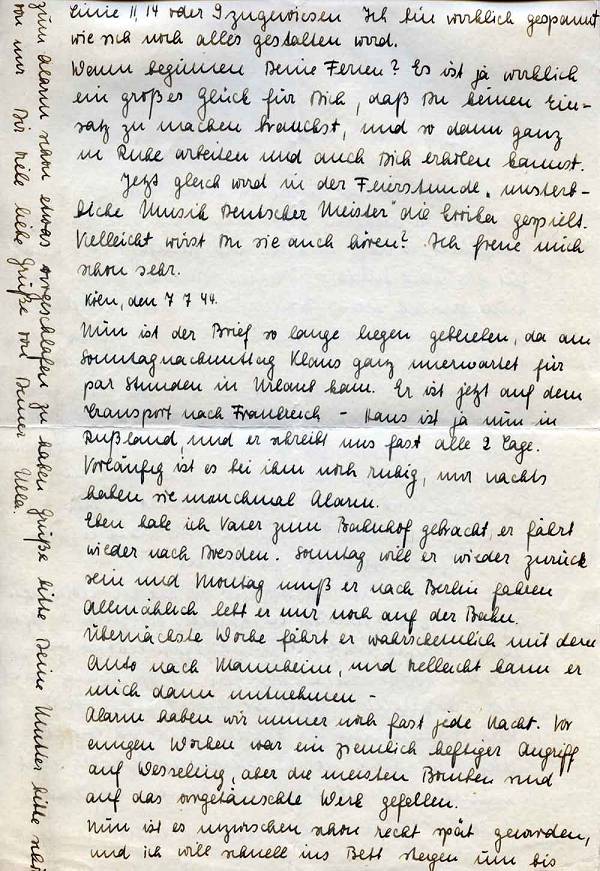 Linie 11, 14 oder 9 zugewiesen Ich bin wirklich gespannt
wie sich noch alles gestalten wird.
Wann beginnen Deine Ferien? Es ist ja wirklich
ein großes Glück für Dich, daß Du keinen Ein-
satz zu machen brauchst, und so dann ganz
in Ruhe arbeiten und auch Dich erholen kannst.
Jetzt gleich wird in der Feierstunde „unsterb-
liche Musik Deutscher Meister" die Eroika gespielt.
Vielleicht wirst Du sie auch hören? Ich freue mich
schon sehr.
Köln, den 7 7 44.
Nun ist der Brief so lange liegen geblieben, da am
Sonntagnachmittag Klaus ganz unerwartet für
paar Stunden in Urlaub kam. Er ist jetzt auf dem
Transport nach Frankreich - Hans ist ja nun in
Rußland, und er schreibt uns fast alle 2 Tage.
Vorläufig ist es bei ihm noch ruhig, nur nachts
haben sie manchmal Alarm.
Eben habe ich Vater zum Bahnhof gebracht, er fährt
wieder nach Dresden. Sonntag will er wieder zurück
sein und Montag muß er nach Berlin fahren
Allmählich lebt er nur noch auf der Bahn.
Übernächste Woche fährt er wahrscheinlich mit dem
Auto nach Mannheim, und vielleicht kann er
mich dann mitnehmen -
Alarm haben wir immer noch fast jede Nacht. Vor
einigen Wochen war ein ziemlich heftiger Angriff
auf Wesseling, aber die meisten Bomben sind
auf das vorgetäuschte Werk gefallen.
Nun ist es inzwischen schon recht spät geworden,
und ich will schnell ins Bett steigen um bis
zum Alarm schon etwas vorgeschlafen zu haben Grüße bitte Deine Mutter bitte
von mir Dir viele liebe Grüße von Deiner Ulla.